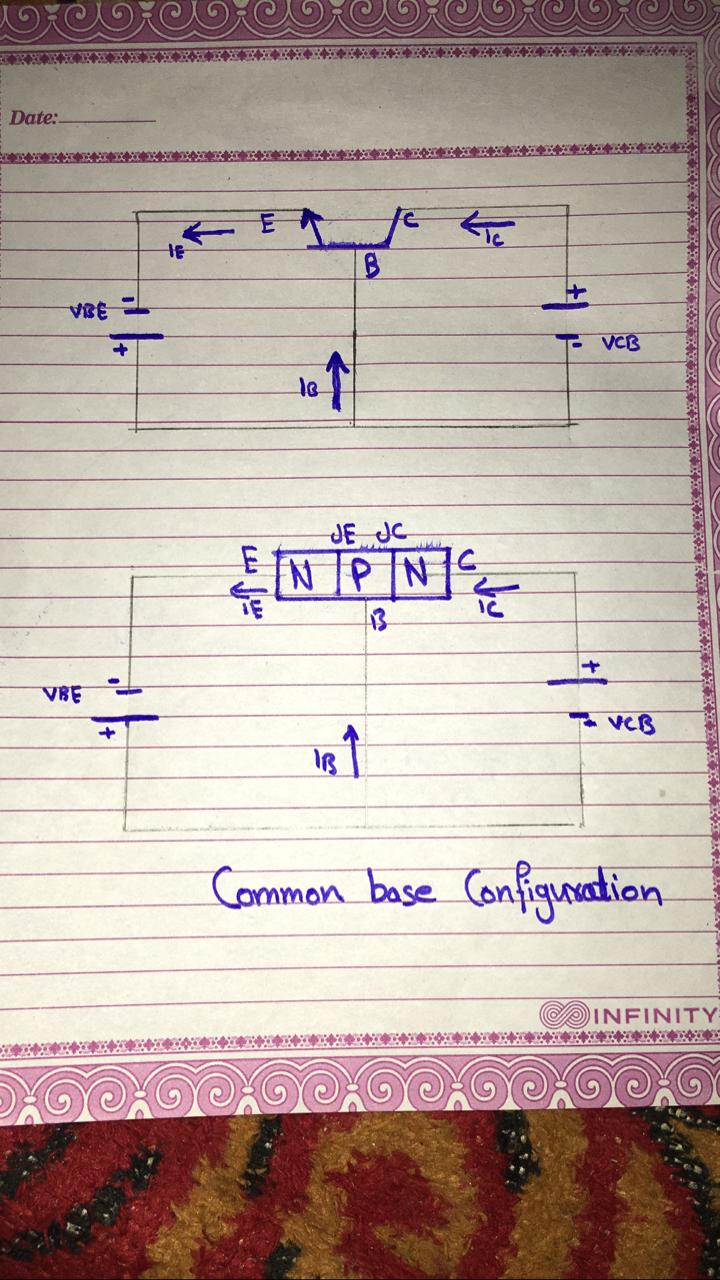 Date:
E
C
IE
IC
B
VBE
-
+
+
-
VCB
IB
JE JC
E
N P N
C
IE
IC
B
VBE
-
+
+
-
VCB
IB
Common base Configuration
INFINITY